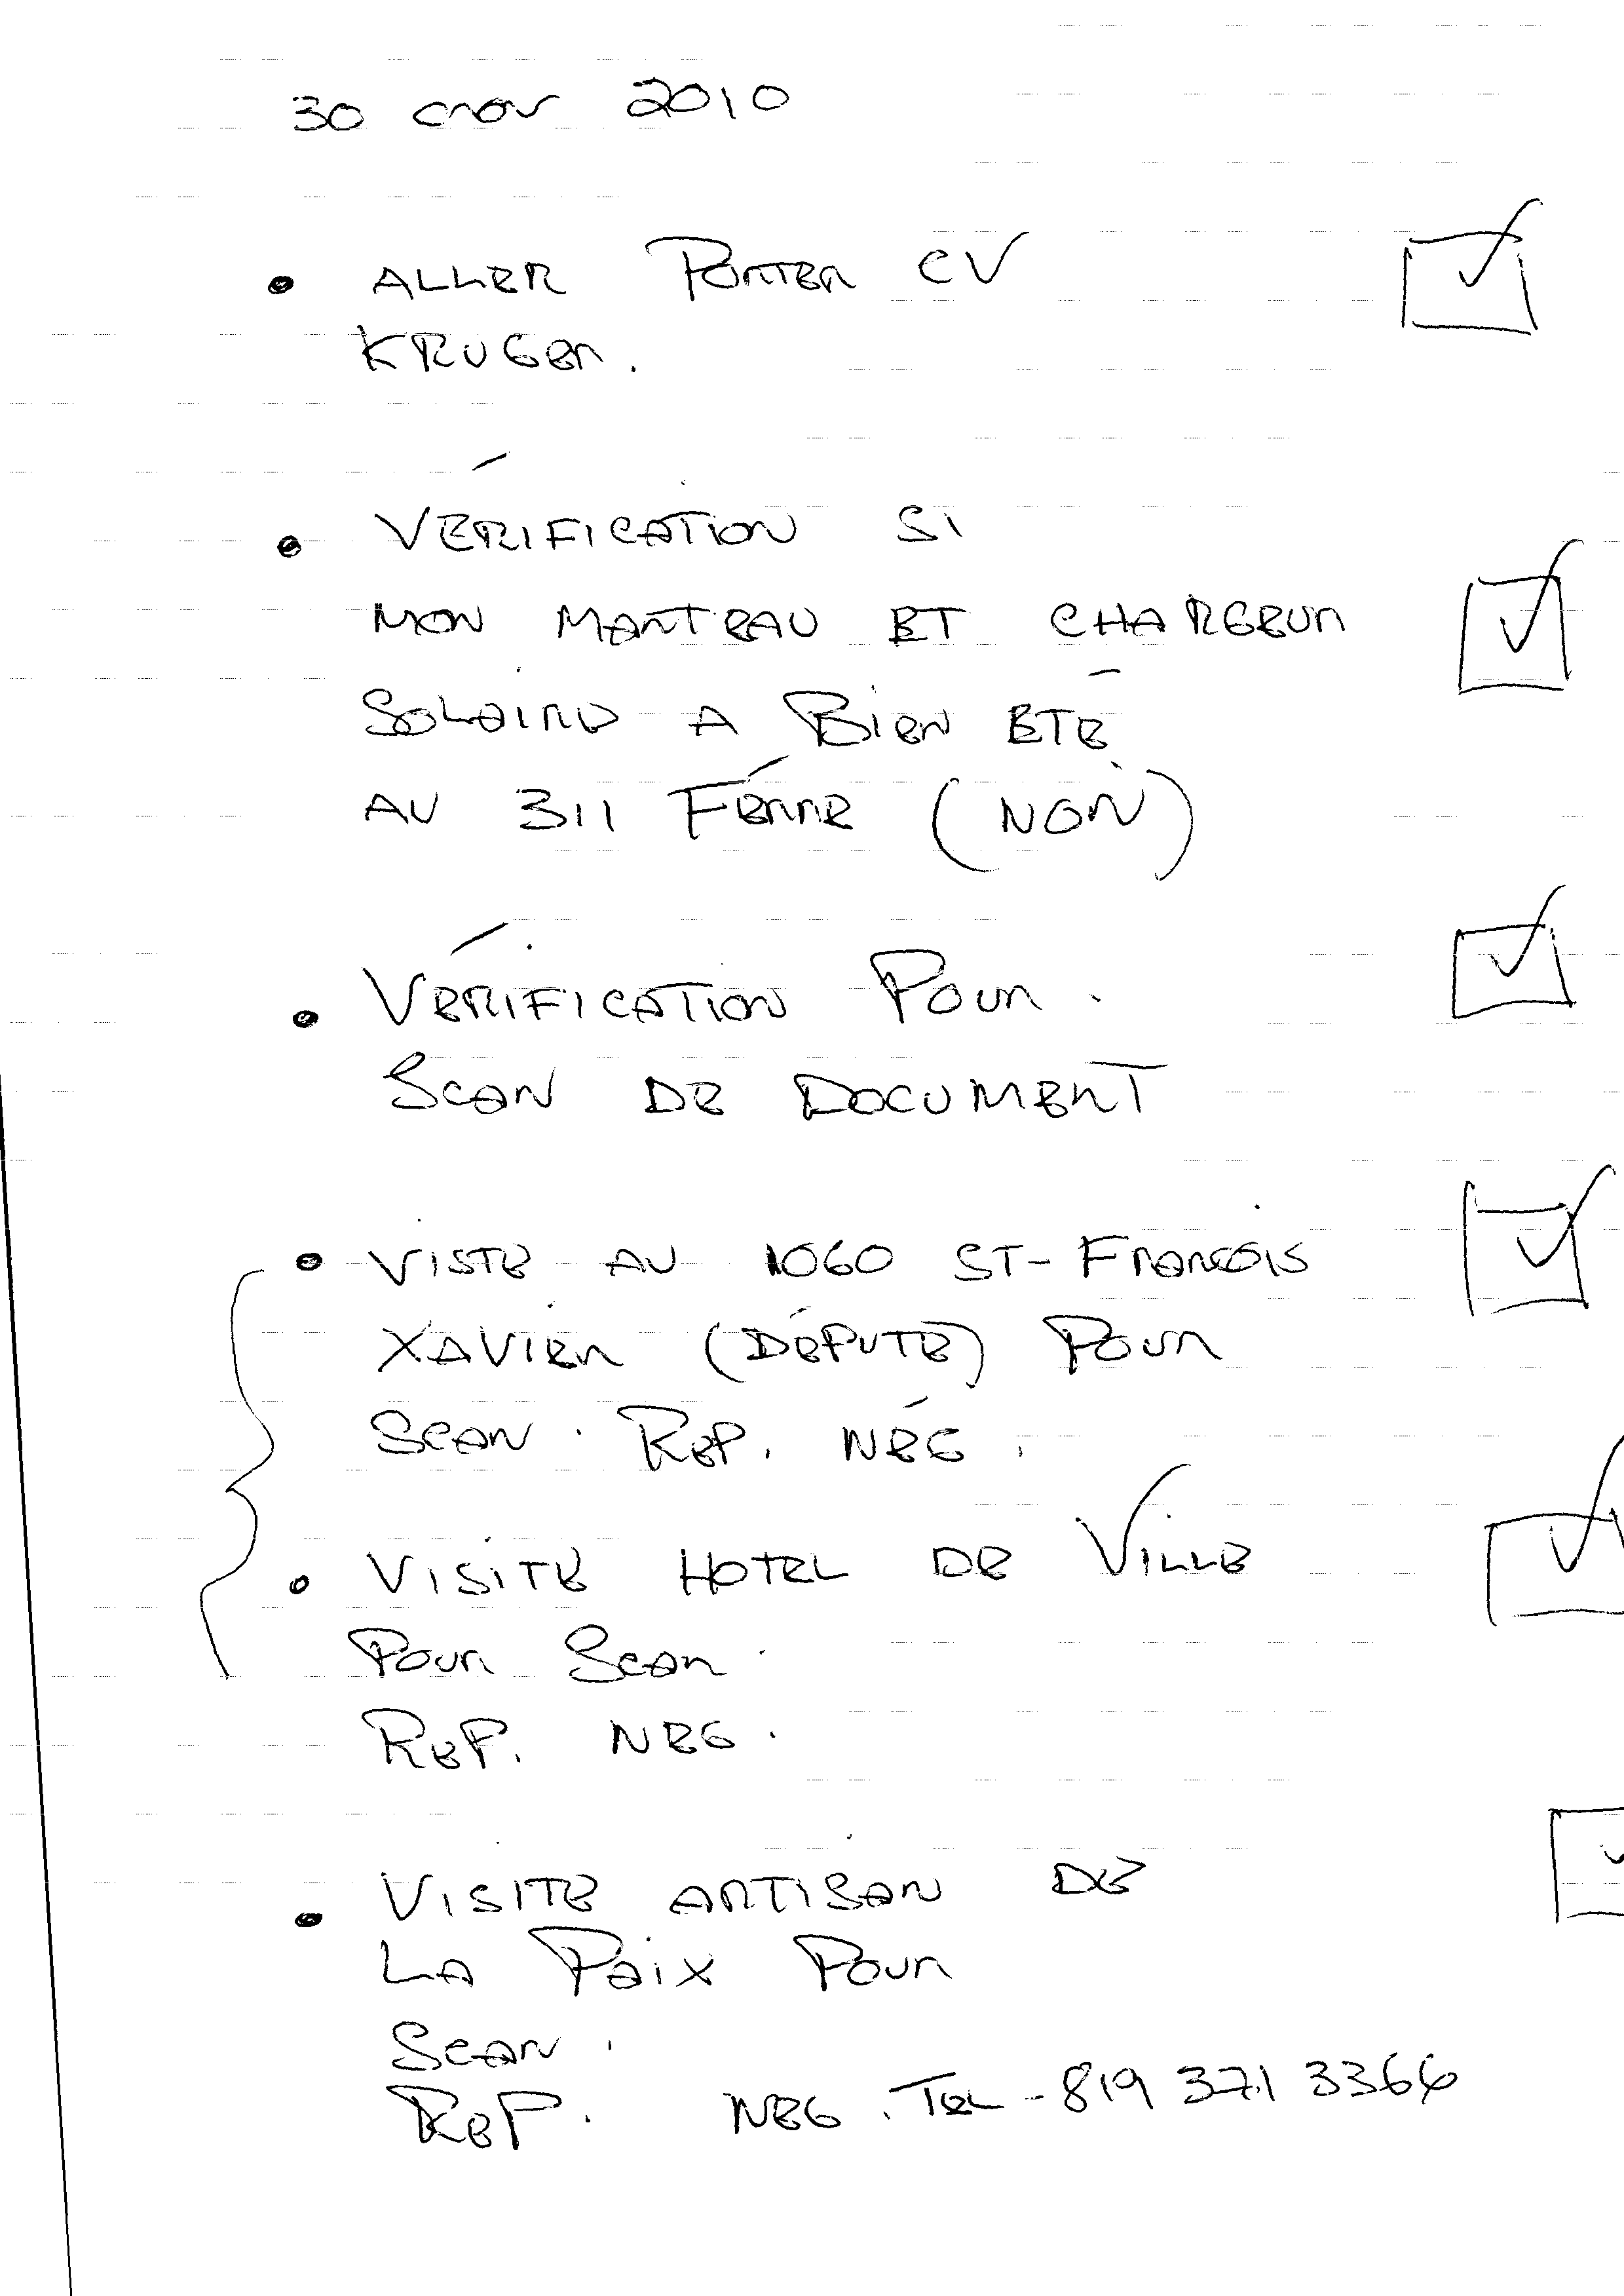 30 nov 2010
• ALLER PORTER CV
KRUGER.
• VÉRIFICATION SI
MON MANTEAU ET CHARGEUR
SOLAIRE A BIEN ETÉ
AU 311 FERMÉ (NON)
• VÉRIFICATION POUR
SCAN DE DOCUMENT
• VISTE AU 1060 ST-FRANCOIS
XAVIER (DÉPUTÉ) POUR
SCAN. REP. NÉG.
• VISITE HOTEL DE VILLE
POUR SCAN.
REP. NEG.
• VISITE ARTISAN DE
LA PAIX POUR
SCAN.
REP. NEG. TEL - 819 371 3366